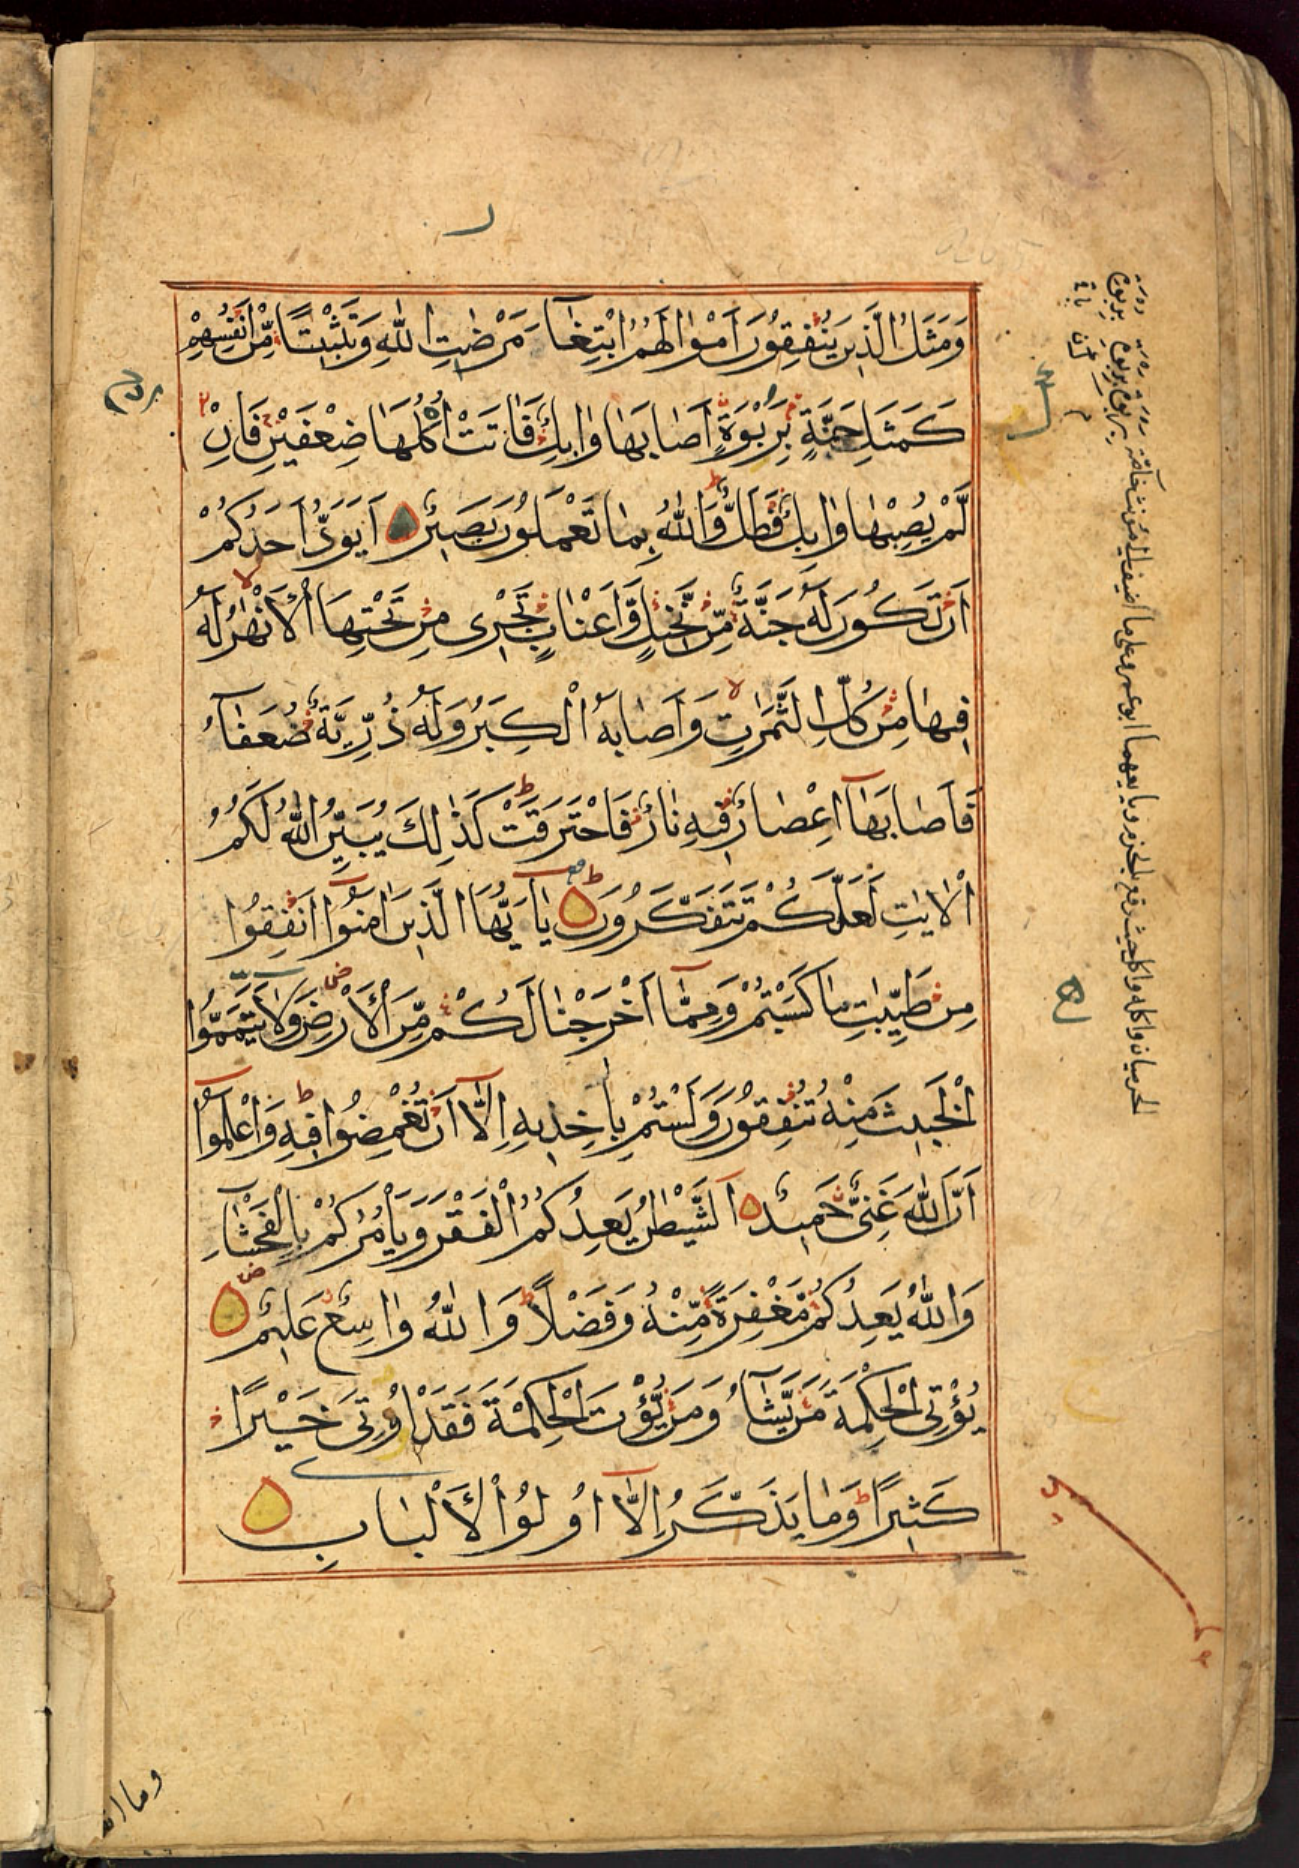 وَمَثَلُ الَّذِينَ يُنْفِقُونَ أَمْوَالَهُمُ ابْتِغَاءَ مَرْضَاتِ اللَّهِ وَتَثْبِيتًا مِّنْ أَنْفُسِهِمْ
كَمَثَلِ جَنَّةٍ بِرَبْوَةٍ أَصَابَهَا وَابِلٌ فَآتَتْ أُكُلَهَا ضِعْفَيْنِ فَإِنْ
لَّمْ يُصِبْهَا وَابِلٌ فَطَلٌّ وَاللَّهُ بِمَا تَعْمَلُونَ بَصِيرٌ أَيَوَدُّ أَحَدُكُمْ
أَنْ تَكُونَ لَهُ جَنَّةٌ مِّنْ نَّخِيلٍ وَّأَعْنَابٍ تَجْرِى مِنْ تَحْتِهَا الْأَنْهٰرُ لَهُ
فِيهَا مِنْ كُلِّ الثَّمَرٰتِ وَأَصَابَهُ الْكِبَرُ وَلَهُ ذُرِّيَّةٌ ضُعَفَاءُ
فَأَصَابَهَا إِعْصَارٌ فِيهِ نَارٌ فَاحْتَرَقَتْ كَذٰلِكَ يُبَيِّنُ اللَّهُ لَكُمُ
الْاٰيٰتِ لَعَلَّكُمْ تَتَفَكَّرُونَ يَا أَيُّهَا الَّذِينَ اٰمَنُوا أَنْفِقُوا
مِنْ طَيِّبٰتِ مَا كَسَبْتُمْ وَمِمَّا أَخْرَجْنَا لَكُمْ مِّنَ الْأَرْضِ وَلَا تَيَمَّمُوا
الْخَبِيثَ مِنْهُ تُنْفِقُونَ وَلَسْتُمْ بِاٰخِذِيهِ إِلَّا أَنْ تُغْمِضُوا فِيهِ وَاعْلَمُوا
أَنَّ اللَّهَ غَنِىٌّ حَمِيدٌ الشَّيْطٰنُ يَعِدُكُمُ الْفَقْرَ وَيَأْمُرُكُمْ بِالْفَحْشَاءِ
وَاللَّهُ يَعِدُكُمْ مَّغْفِرَةً مِّنْهُ وَفَضْلًا وَاللَّهُ وَاسِعٌ عَلِيمٌ
يُؤْتِى الْحِكْمَةَ مَنْ يَّشَاءُ وَمَنْ يُّؤْتَ الْحِكْمَةَ فَقَدْ أُوتِىَ خَيْرًا
كَثِيرًا وَمَا يَذَّكَّرُ إِلَّا أُولُوا الْأَلْبَابِ